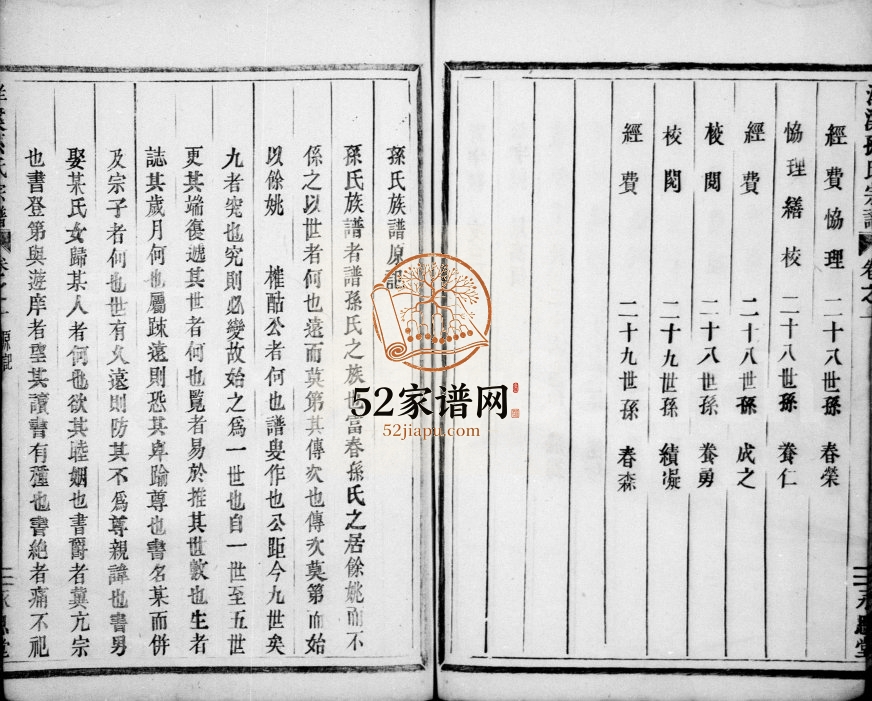 經費協理 二十八世孫 春榮
協理繕校 二十八世孫 養仁
經費 二十八世孫 成之
校閱 二十八世孫 養勇
校閱 二十九世孫 績凝
經費 二十九世孫 春森
孫氏族譜原記
孫氏族譜者譜孫氏之族也富春孫氏之居餘姚而不
係之以世者何也遠而莫第其傳次也傳次莫第而始
以餘姚 榷酤公者何也譜叟作也公距今九世矣
九者究也究則必變故始之爲一世也自一世至五世
更其端復遞其世者何也覽者易於推其世數也生者
誌其歲月何也屬踈遠則恐其卑踰尊也書名某而併
及宗子者何也世有久遠則防其不爲尊親諱也書男
娶某氏女歸某人者何也欲其睦姻也書爵者冀亢宗
也書登第與遊庠者望其讀書有種也書絶者痛不祀
孫氏宗譜 卷之一 原記 二 承恩堂
52家谱网
52jiapu.com